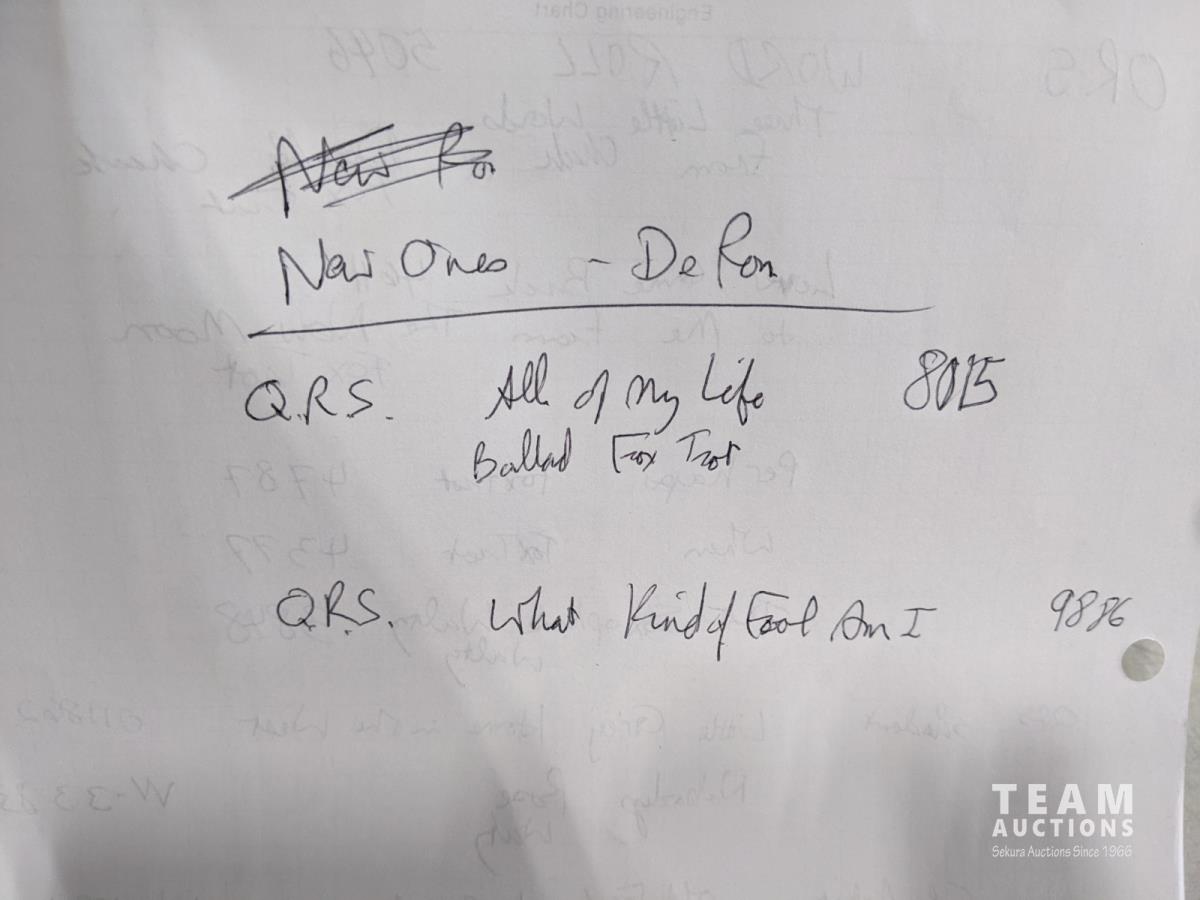 New Ron
New Ones - De Ron
Q.R.S. All of My Life 8015
Ballad Fox Trot
Q.R.S. What Kind of Fool Am I 9886
TEAM
AUCTIONS
Sekura Auctions Since 1966